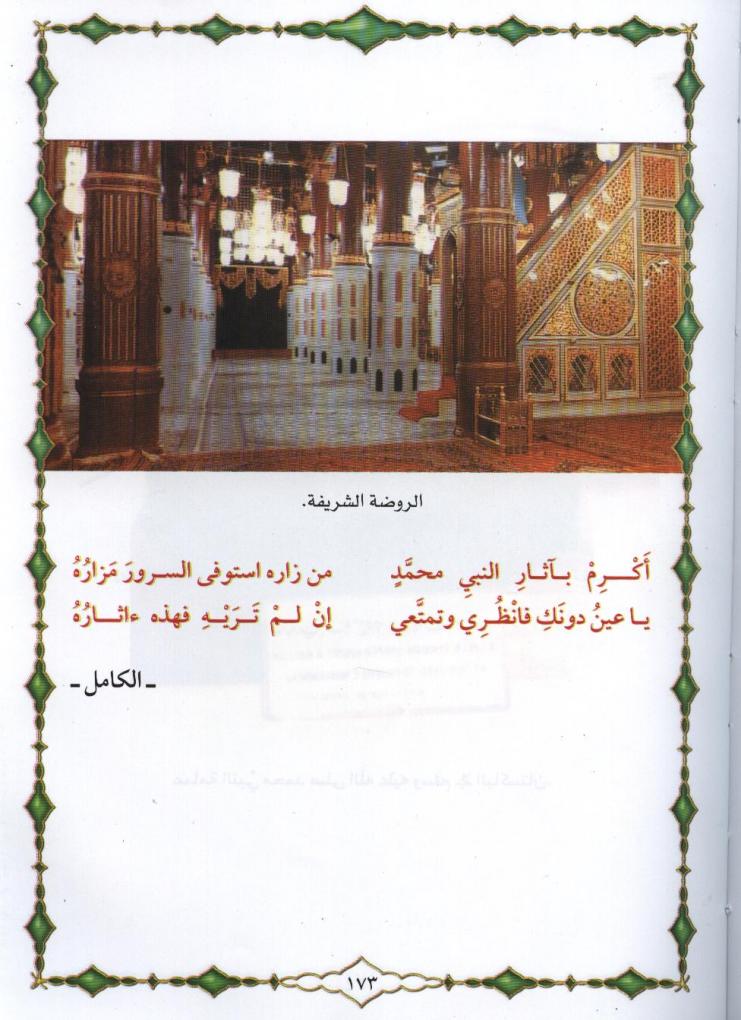 الروضة الشريفة.
أَكْـــرِمْ بــآثــارِ النبيِ محمَّدٍ من زاره استوفى السرورَ مَزارُهُ
يا عينُ دونَكِ فانْظُرِي وتمتَّعي إنْ لــمْ تَــرَيْــهِ فهذه ءاثــارُهُ
ـ الكامل ـ
١٧٣